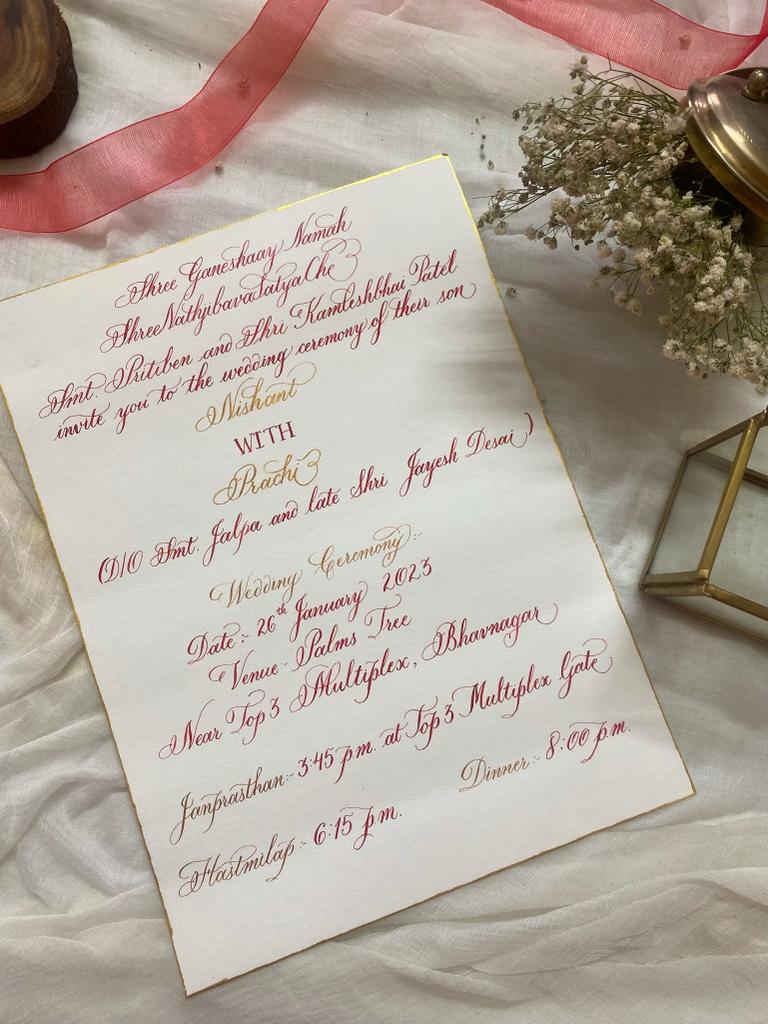 Shree Ganeshaay Namah
ShreeNathjibavaSatyaChe
Smt. Pritiben and Shri Kamleshbhai Patel
invite you to the wedding ceremony of their son
Nishant
WITH
Prachi
(D/O Smt. Jalpa and late Shri Jayesh Desai)
Wedding Ceremony:-
Date:- 26th January 2023
Venue:- Palms Tree
Near Top3 Multiplex, Bhavnagar
Janprasthan:- 3:45 p.m. at Top3 Multiplex Gate
Hastmilap:- 6:15 p.m.
Dinner:- 8:00 p.m.